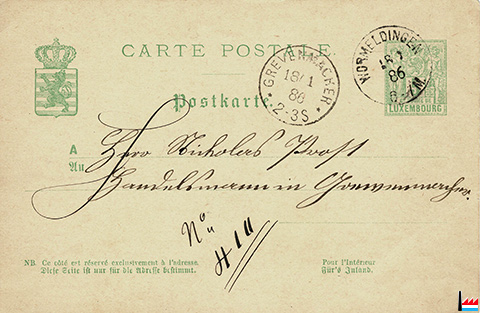 CARTE POSTALE
Postkarte
GREVENMACHER
18/1
86
2-3S
WORMELDINGEN
18 1
86
6-7M
LUXEMBOURG
A
An
Herr Nicholas Proost
Handelsmann in Grevenmacher.
No
NB. Ce côté est réservé exclusivement à l'adresse.
Diese Seite ist nur für die Adresse bestimmt.
Pour l'intérieur
Für's Inland.